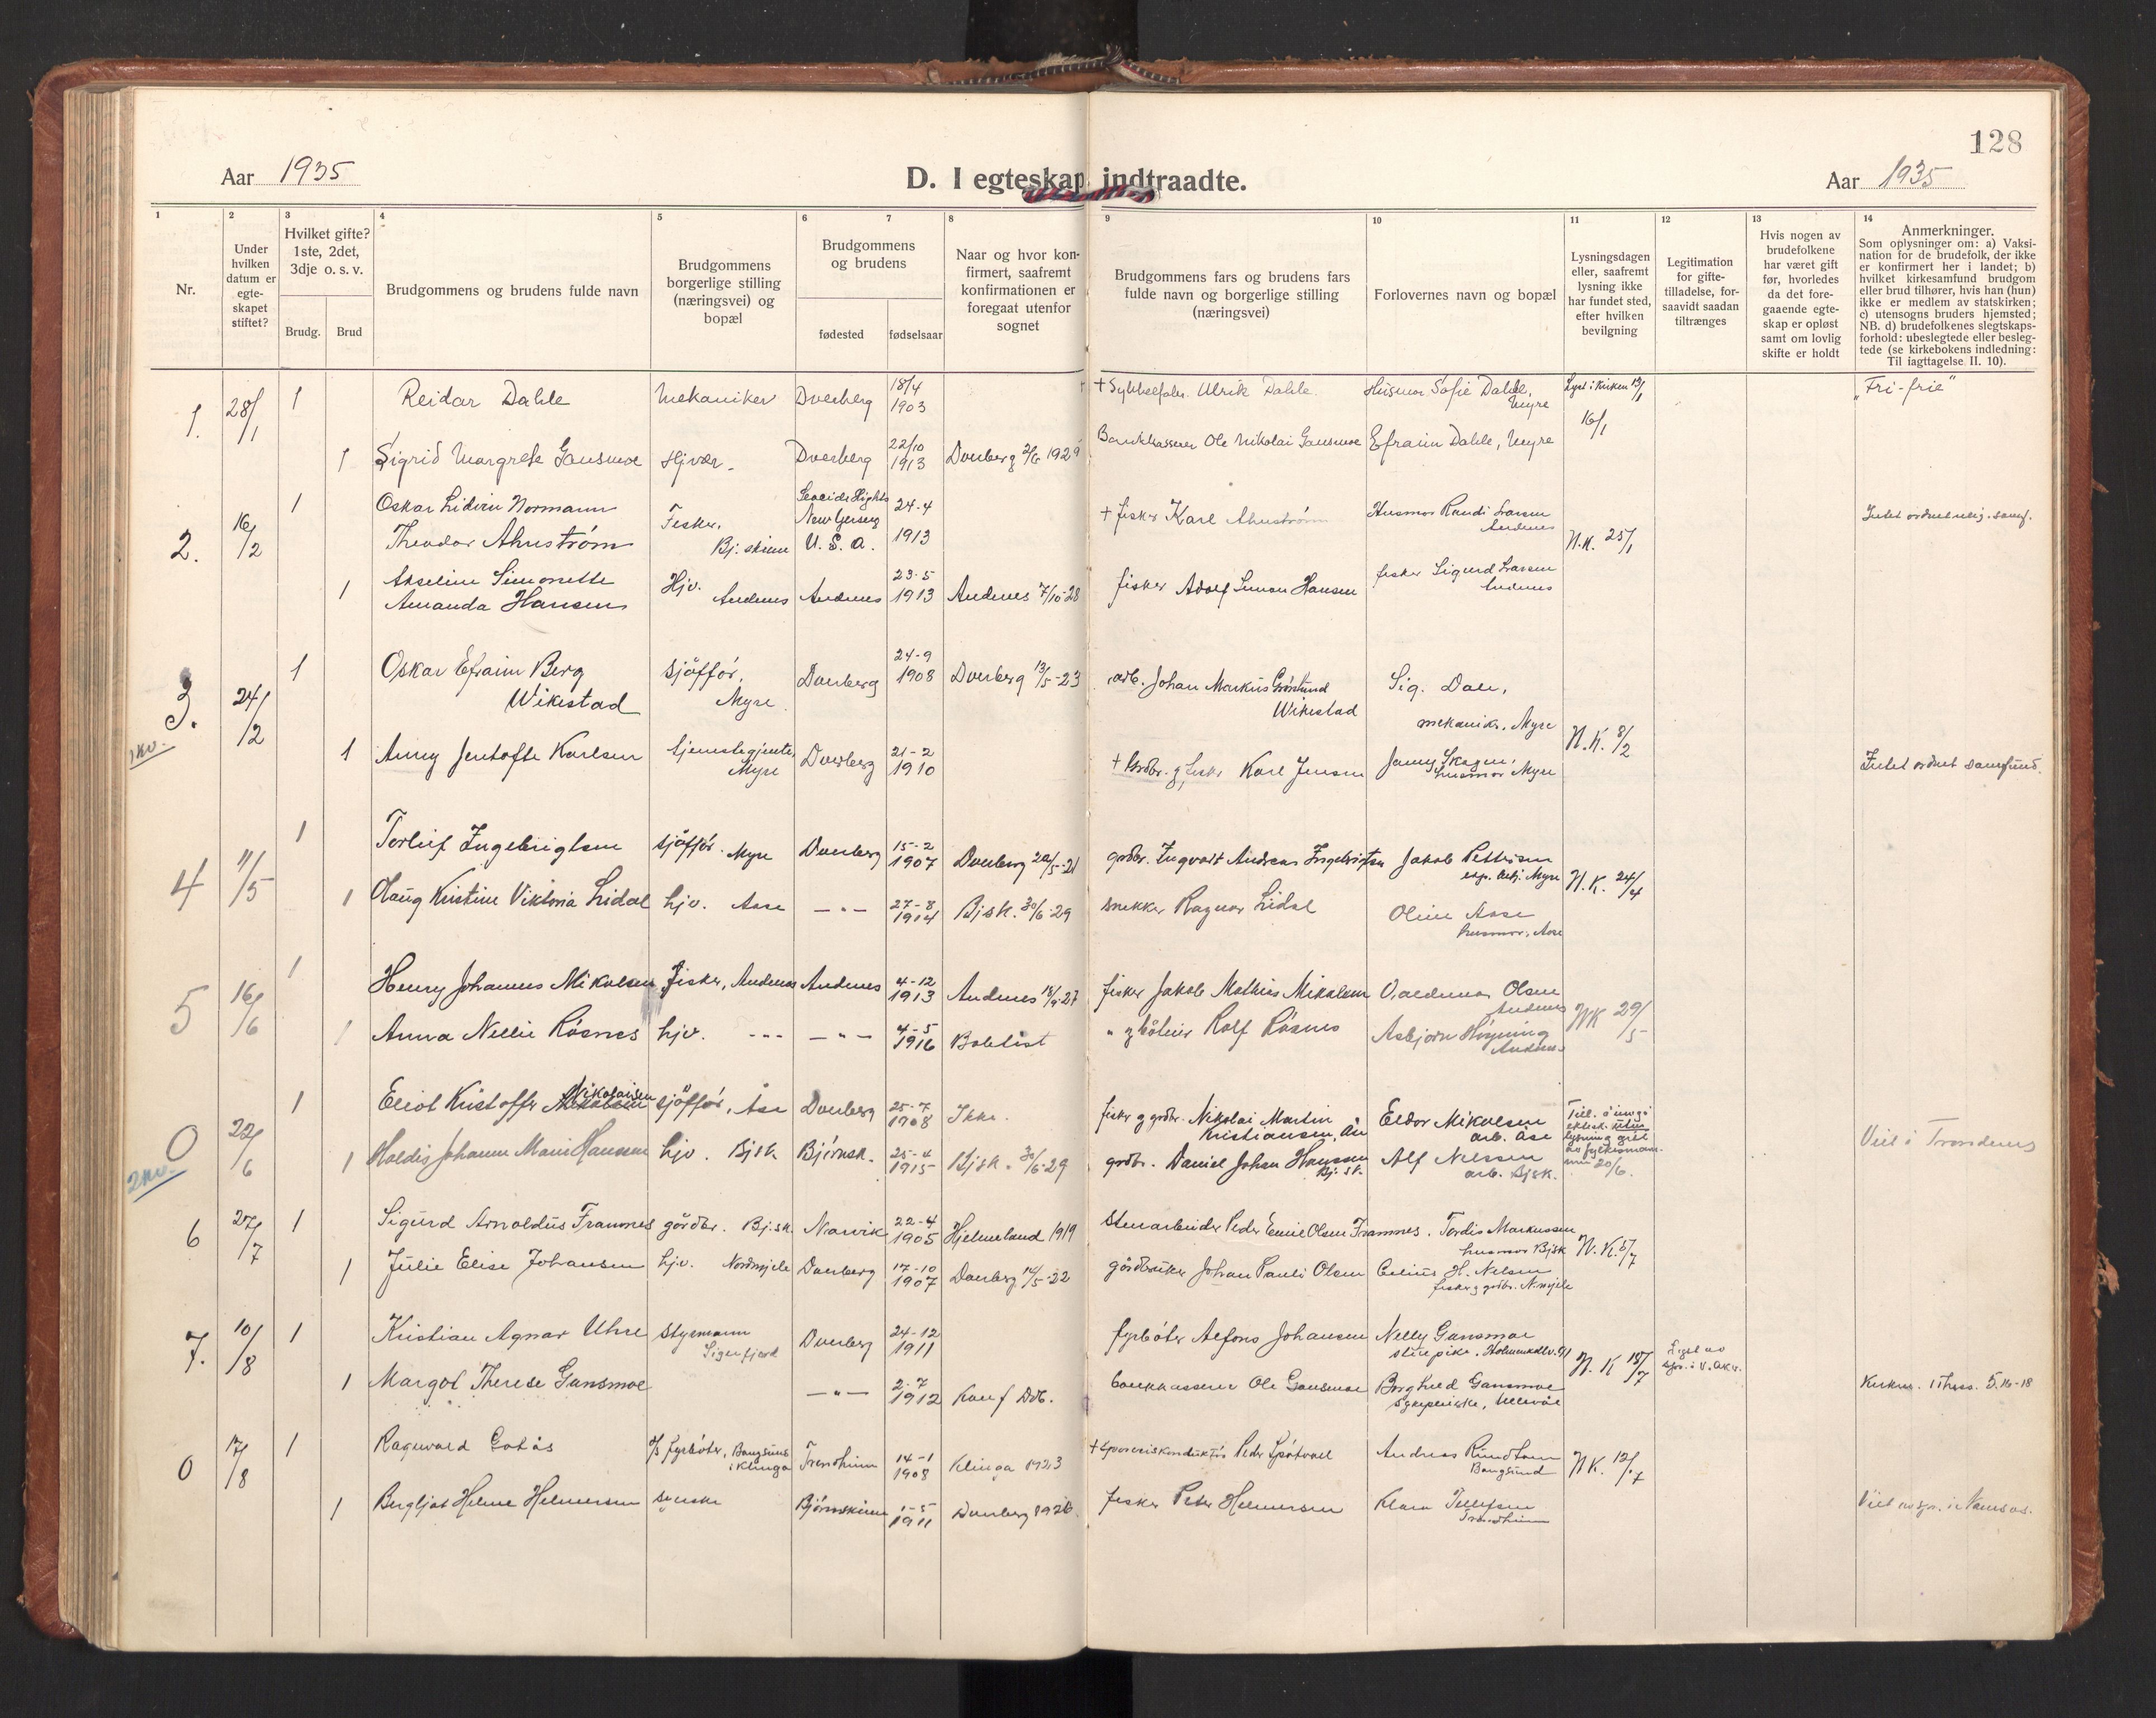 128
Aar 1935
D. I egteskap indtraadte.
Aar 1935
1 2 3 4 5 6 7 8 9 10 11 12 13 14
Nr.
Under hvilken datum er egte-skapet stiftet?
Hvilket gifte? 1ste, 2det, 3dje o. s. v.
Brudg.
Brud
Brudgommens og brudens fulde navn
Brudgommens borgerlige stilling (næringsvei) og bopæl
Brudgommens og brudens
fødested
fødselsaar
Naar og hvor kon-firmert, saafremt konfirmationen er foregaat utenfor sognet
Brudgommens fars og brudens fars fulde navn og borgerlige stilling (næringsvei)
Forlovernes navn og bopæl
Lysningsdagen eller, saafremt lysning ikke har fundet sted, efter hvilken bevilgning
Legitimation for gifte-tilladelse, for-saavidt saadan tiltrænges
Hvis nogen av brudefolkene har været gift før, hvorledes da det fore-gaaende egte-skap er opløst samt om lovlig skifte er holdt
Anmerkninger.
Som oplysninger om: a) Vaksi-nation for de brudefolk, der ikke er konfirmert her i landet; b) hvilket kirkesamfund brudgom eller brud tilhører, hvis han (hun) ikke er medlem av statskirken; c) utensogns bruders hjemsted; NB. d) brudefolkenes slegtskaps-forhold: ubeslegtede eller besleg-tede (se kirkebokens indledning: Til iagttagelse II. 10).
1. 28/1 1 Reidar Dahle Mekaniker Dverberg 18/4 1903 Ulrik Dahle Husmor Sofie Dahle, Myre Lyst i kirken 13/1 16/1 "Fri-frie"
1 Sigrid Margrete Gansmoe Hjvær. Dverberg 22/10 1913 Dverberg 2/6 1929 Bankkasserer Ole Nikolai Gansmoe Efraim Dahle, Myre
2. 16/2 1 Oskar Lidvin Normann Seacide Hights 24-4 + fisker Karl Ahnstrøm Husmor Randi Larsen Andenes
Theodor Ahnstrøm Fisker, Bj. skinn New Yersey U.S.A. 1913 N.K. 25/1
1 Akseline Simonette Hjv. Andenes Andenes 23-5 1913 Andenes 7/10-28 fisker Adolf Simon Hansen fisker Sigurd Larsen Andenes
Amanda Hansen
3. 24/2 1 Oskar Efraim Berg sjåffør, Myre Dverberg 24-9 1908 Dverberg 13/5-23 arb. Johan Markus Wikestad Sig. Dale, mekanikr. Myre N.K. 8/2
Wikestad
1kv.
1 Anny Jentofte Karlsen tjenestegjente, Myre Dverberg 21-2 1910 + Grdbr. g fisker Karl Jensen Jenny Skagen, husmor Myre Intet ordnet samfund.
4 11/5 1 Torleif Ingebrigtsen sjåffør. Myre Dverberg 15-2 1907 Dverberg 22/5-21 grdbr. Ingvart Andreas Ingebrigtsen Jakob Pettersen Myre N.K. 24/4
1 Olaug Kristine Viktoria Lidal hjv. Aase — " — 27-8 1914 Bjsk. 30/6-29 snekker Ragnar Lidal Oline Aase husmor, Aase
5 16/6 1 Henry Johannes Mikalsen fisker, Andenes Andenes 4-12 1913 Andenes 18/9-27 fisker Jakob Mathias Mikalsen Valdemar Olsen Andenes NK 29/5
1 Anna Nellie Røsnes hjv. --- — " — 4-5 1916 " Rolf Røsnes Asbjørn Andenes
0 22/6 1 Eliot Kristoffer Nikolaisen sjåffør, Åse Dverberg 25-7 1908 Ikke. fisker g grdbr. Nikolai Martin Kristiansen, Ån Eldor Mikalsen arb. Åse Till. å inngå ektesk. uten lysning gitt av fylkesmannen 20/6.
2kv.
1 Haldis Johanne Marie Hanssen hjv. Bjsk Bjørnsk. 25-4 1915 Bjsk. 30/6-29 grdbr. Daniel Johan Hanssen Bj.sk. Alf Nilssen arb. Bjsk. Viet i Trondenes
6 27/7 1 Sigurd Arnoldus Framnes gårdbr. Bj.sk. Narvik 22-4 1905 Hjelmeland 1919 Stenarbeider Peder Emil Olsen Framnes. Tordis Markussen husmor Bjsk N.K. 5/7
1 Julie Elise Johansen hjv. Nordmjele Dverberg 17-10 1907 Dverberg 14/5-22 gårdbruker Johan Pauli Olsen H. Nilsen fisker g grdbr. N.mjele
7. 10/8 1 Kristian Agnar Uhre Styrmann Sigerfjord Dverberg 24-12 1911 fyrbøter Alfons Johansen Nelly Gansmoe N.K 18/7
1 Margot Therese Gansmoe — " — 2-7 1912 Konf Dvb. bankkasserer Ole Gansmoe Borghild Gansmoe sykepleierske, Ullevål
0 17/8 1 Ragnvald Gotås fyrbøter, Bangsund i Klinga Trondheim 14-1 1908 Klinga 1923 + Peder Andreas Bangsund NK. 12/7
1 Bergljot Helene Helmersen Bjørnskinn 1-5 1911 Dverberg 1926. fisker Peter Helmersen Klara Tellefsen Trondheim Viet i Namsos.